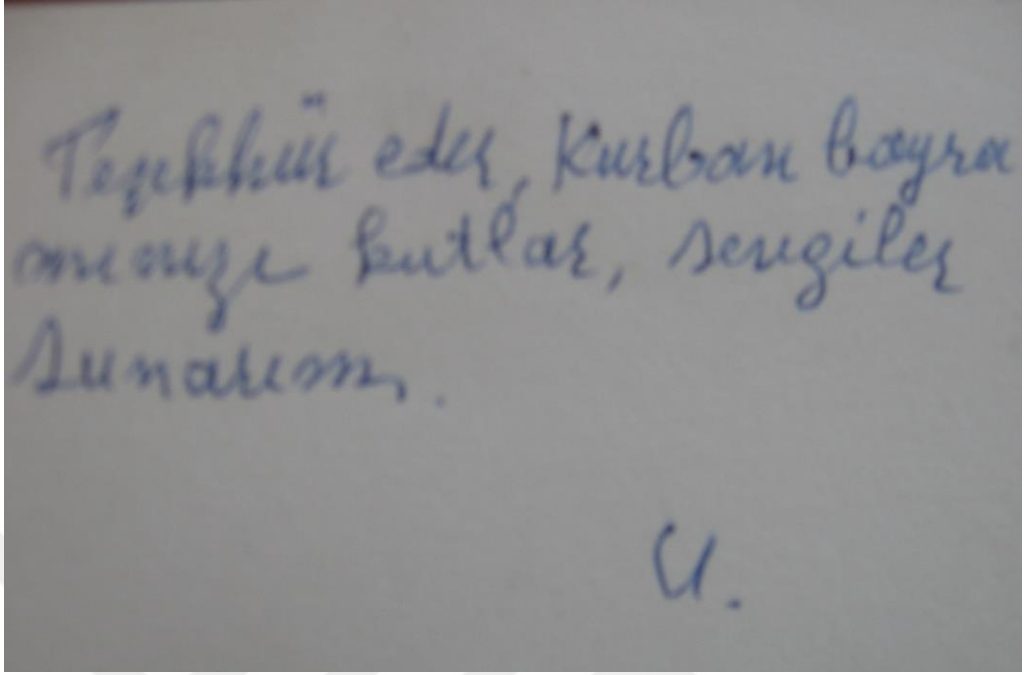 Teşekkür eder, Kurban bayra
mınızı kutlar, sevgiler
sunarım.
U.